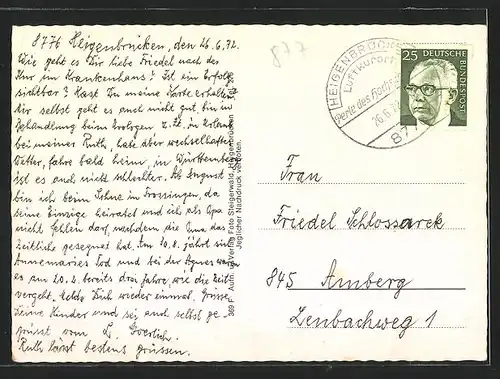 8776 Heigenbrücken, den 26.6.72.
Wie geht es Dir liebe Friedel nach der
Kur im Krankenhaus? Ist ein Erfolg
sichtbar? Hast Du meine Karte erhalten,
Mir selbst geht es auch nicht gut, bin in
Behandlung beim Urologen z. Zt. in Urlaub
bei meiner Ruth, habe aber wechselhaftes
Wetter, fahre bald heim, in Württemberg
ist es auch nicht schlechter. Ab August
bin ich beim Sohne in Trossingen, da
seine Einzige heiratet und ich als Opa
nicht fehlen darf, nachdem die Oma das
Zeitliche gesegnet hat. Am 10.8. jährt sich
Annemaries Tod und bei der Agnes waren
es am 20.4. bereits drei Jahre, wie die Zeit
vergeht. Melde Dich wieder einmal. Grüsse
Deine Kinder und sei auch selbst ge-
grüsst vom
Ruth lässt bestens grüssen.
369 F Auth. u. Verlag Foto Steigerwald, Heigenbrücken
Jeglicher Nachdruck verboten.
877
HEIGENBRÜCKEN
Luftkurort
Perle des Hochs
26.6.72
877
25 DEUTSCHE
BUNDESPOST
Frau
Friedel Schlossarek
845 Amberg
Zenbachweg 1